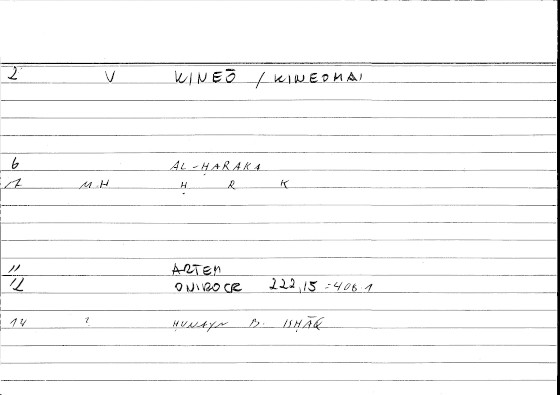 2 V KINEŌ / KINEOMAI
6 AL-ḤARAKA
7 M.H Ḥ R K
11 ARTEM
12 ONIROCR 222,15 = 408.1
14 ? ḤUNAYN B. ISḤĀQ